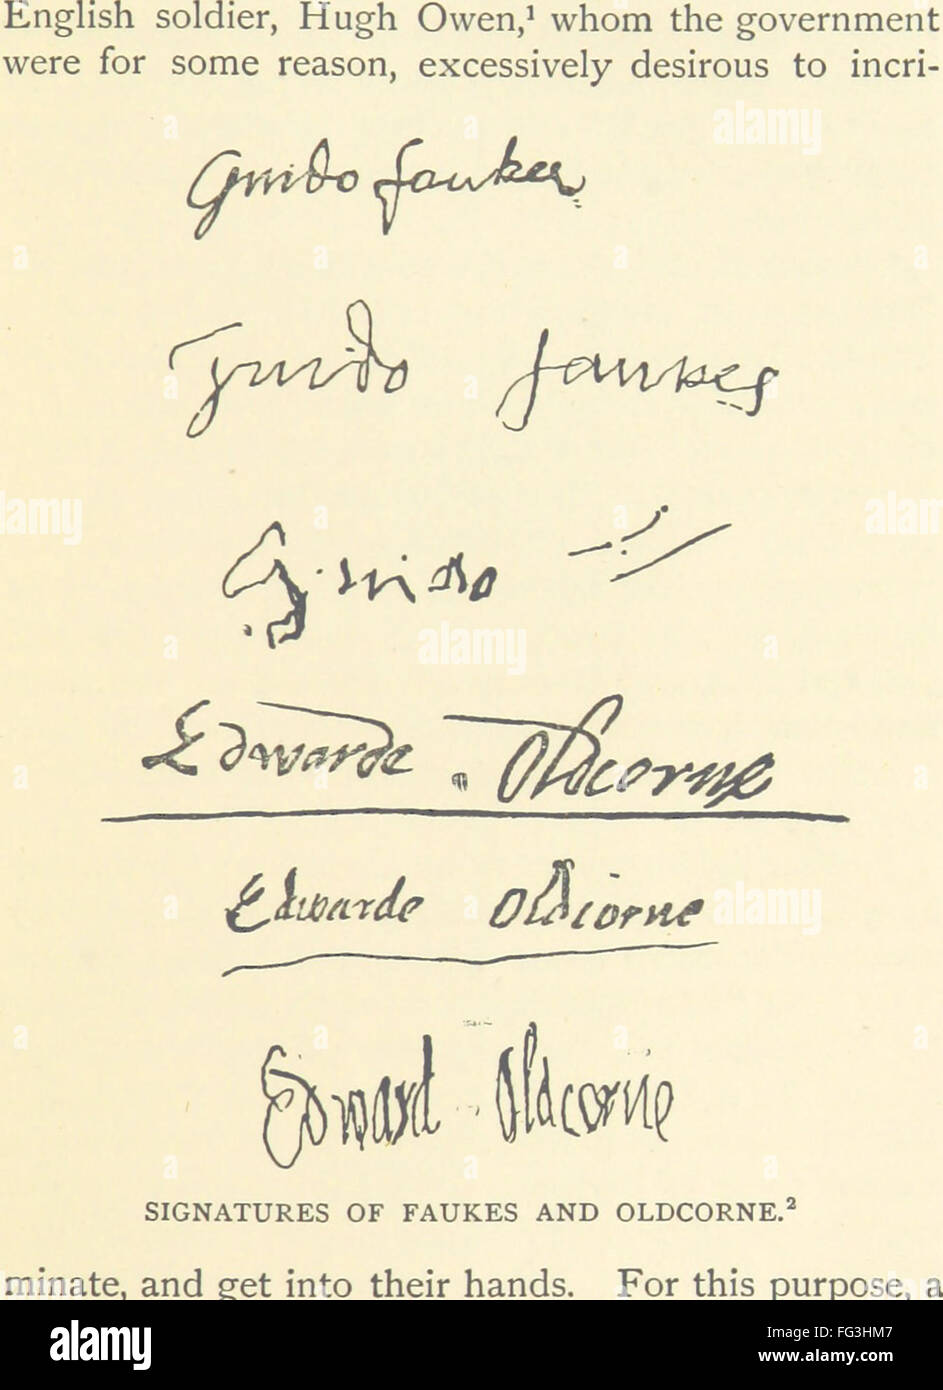 English soldier, Hugh Owen,¹ whom the government
were for some reason, excessively desirous to incri-
Guido faukes
Guido faukes
Guido
Edwarde . Oldcorne
Edwarde Oldcorne
Edward Oldcorne
SIGNATURES OF FAUKES AND OLDCORNE.²
minate, and get into their hands. For this purpose, a
alamy
Image ID: FG3HM7
www.alamy.com